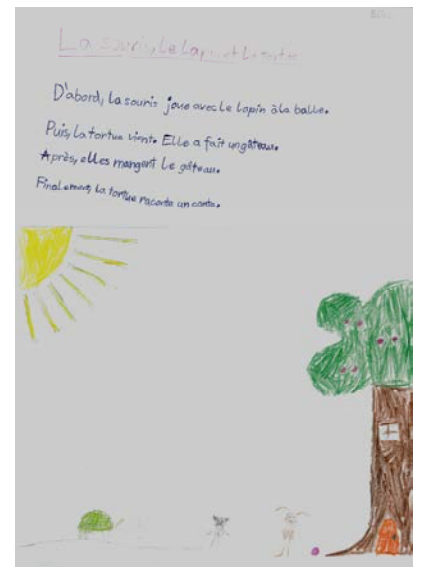 La souris, Le Lapin et La tortue
D'abord, la souris joue avec le lapin à la balle.
Puis, la tortue vient. Elle a fait un gâteau.
Après, elles mangent Le gâteau.
Finalement, la tortue raconte un conte.